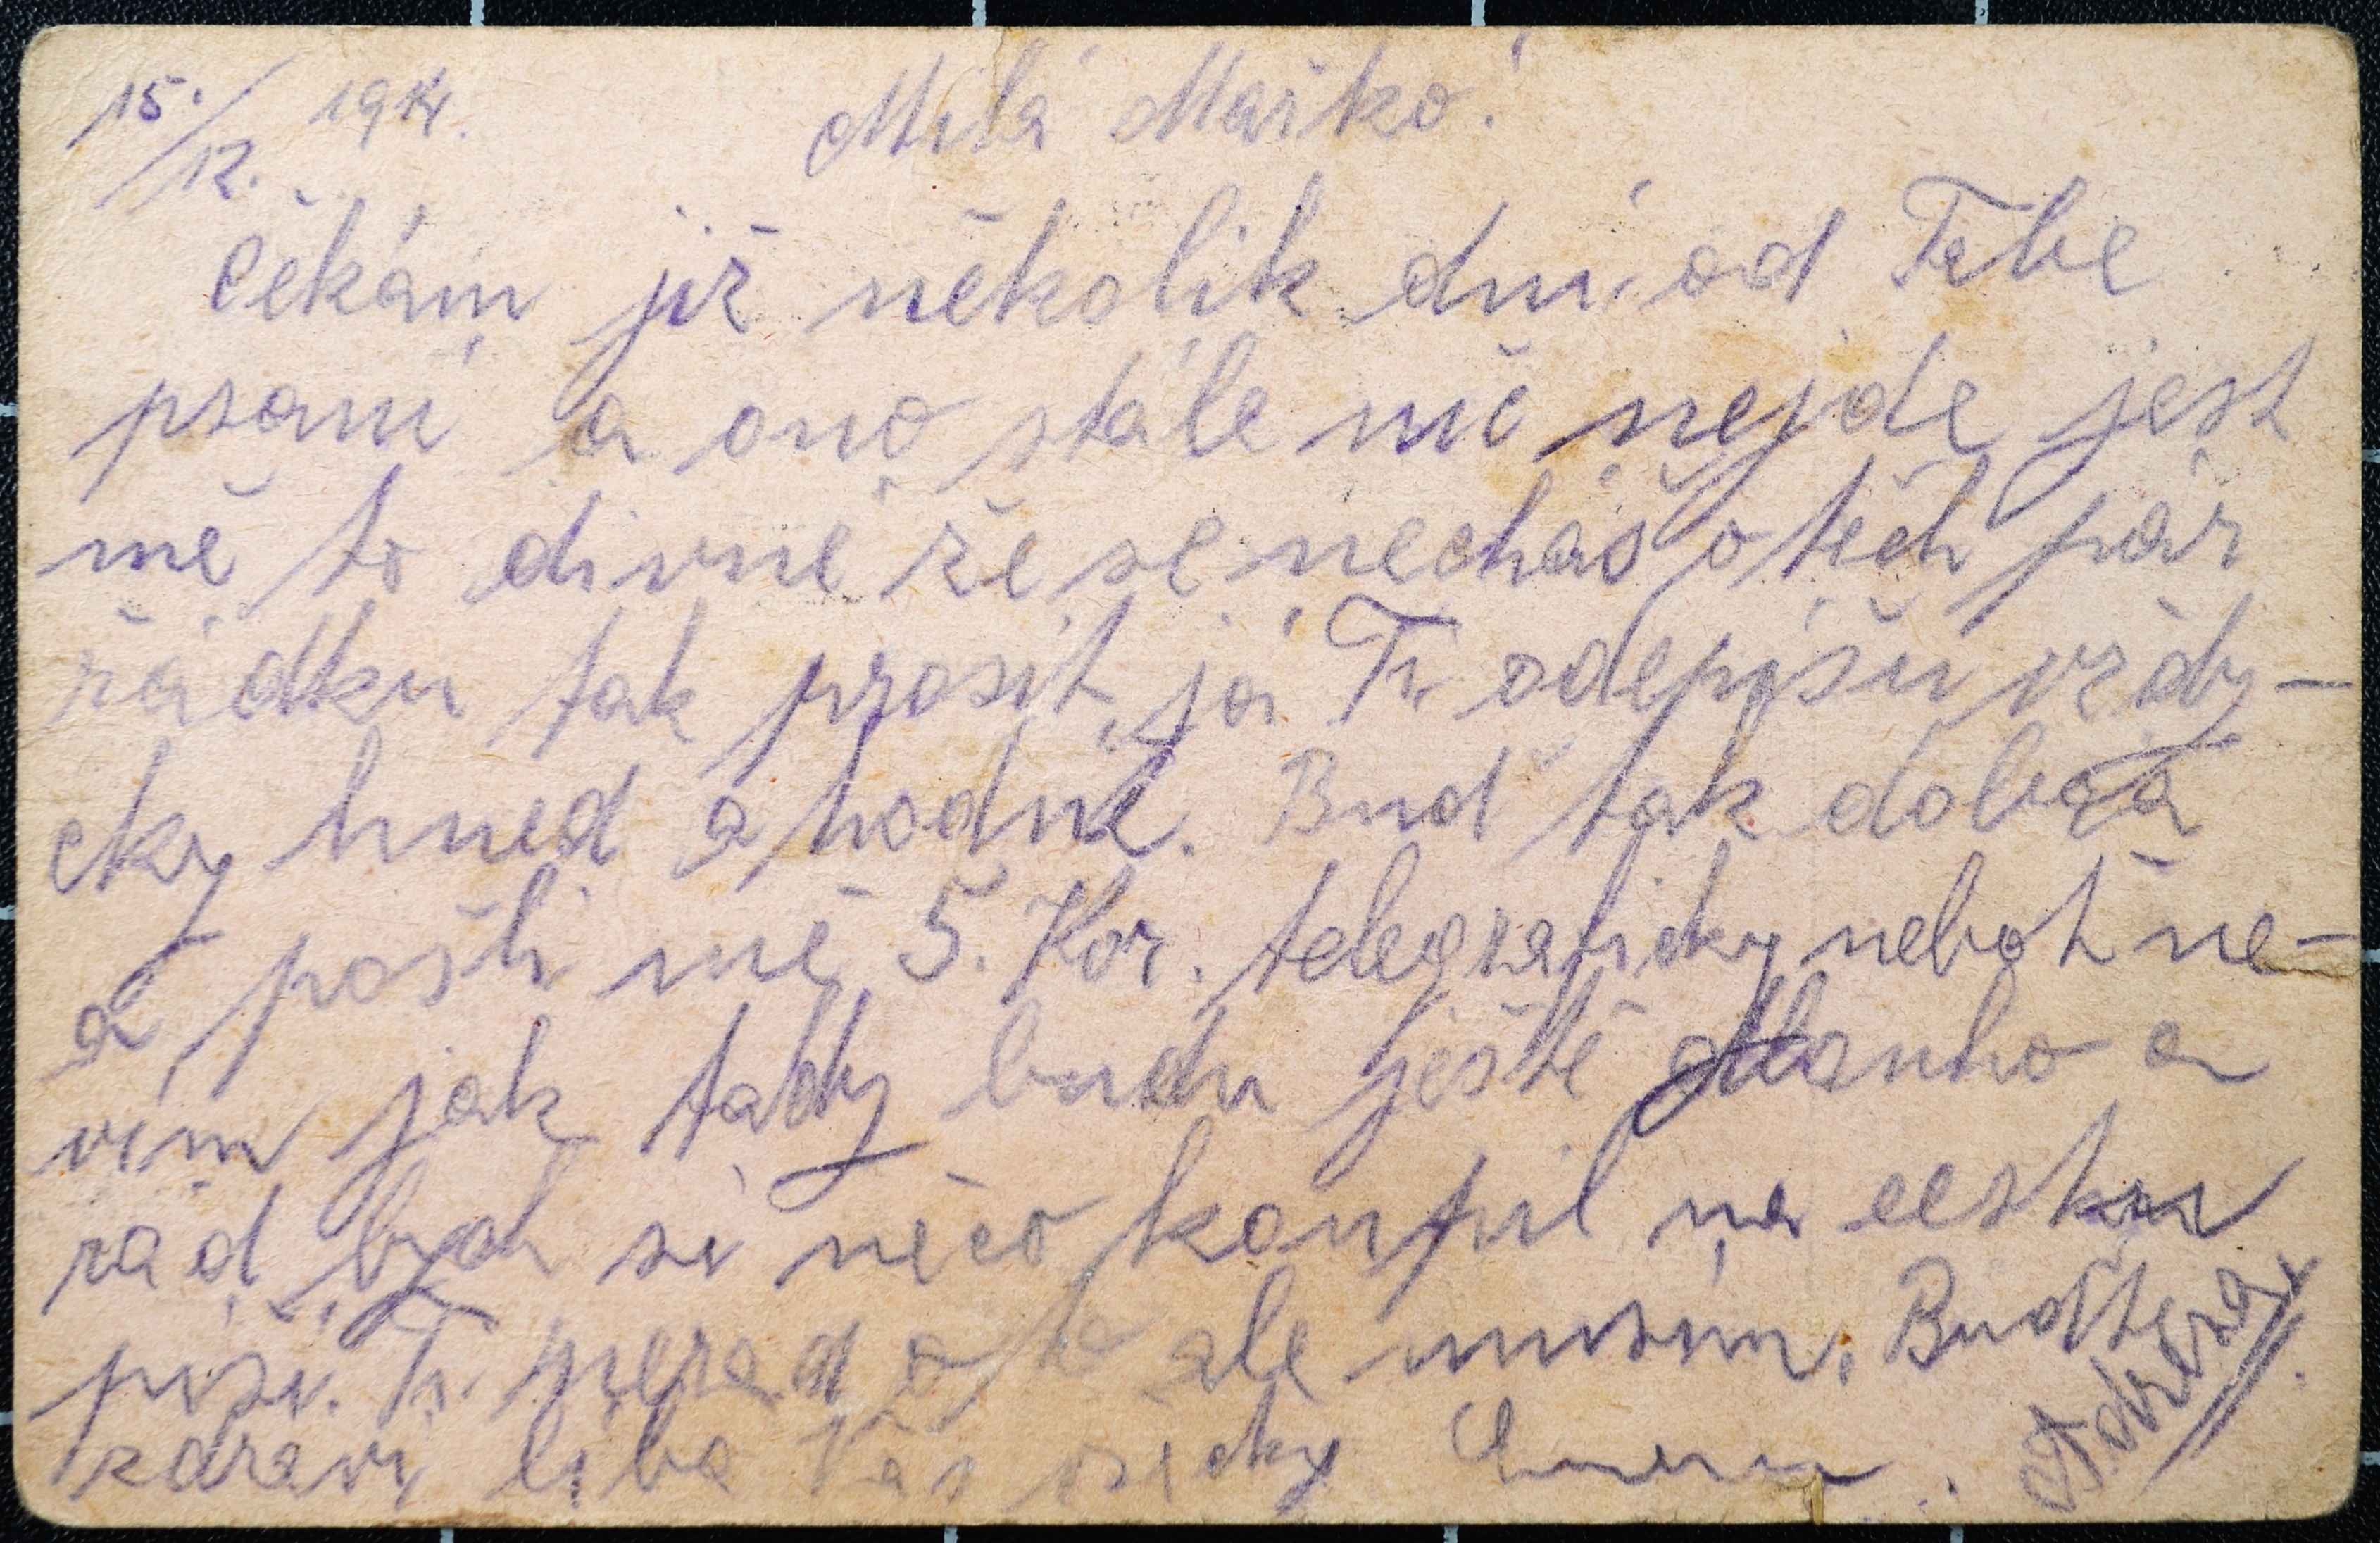 15./12. 1914.
Milá Mařko!
Čekám již několik dní od Tebe
psaní a ono stále nic nejde jest
mě to divné že se necháš o těch pár
řádku tak prosit, já Ti odepíšu vždy-
cky hned a hodně. Buď tak dobrá
a pošli mě 5. Kor. telegraficky neboť ne-
vím jak tady budu ještě dlouho a
rád bych si něco koupil na cestu
píši Ti nerad o to ale musím. Buďte
zdrávi líbá Vás všecky